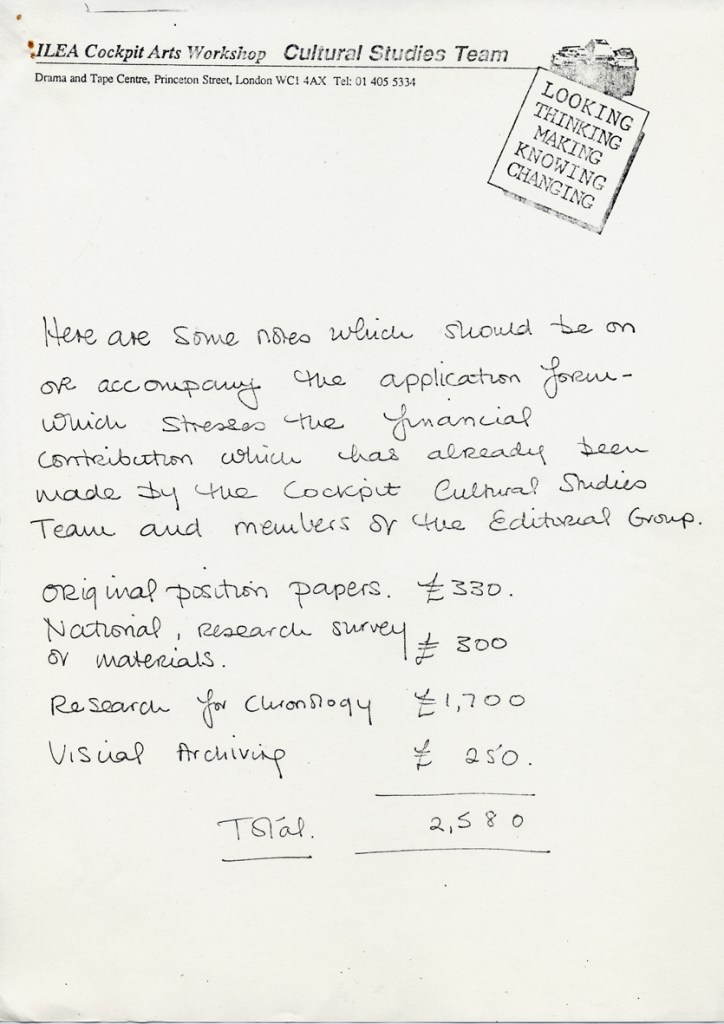 ILEA Cockpit Arts Workshop Cultural Studies Team
Drama and Tape Centre, Princeton Street, London WC1 4AX Tel: 01 405 5334
LOOKING
THINKING
MAKING
KNOWING
CHANGING
Here are some notes which should be on
or accompany the application form -
which stresses the financial
contribution which has already been
made by the Cockpit Cultural Studies
Team and members of the Editorial Group.
Original position papers. £330.
National, research survey
of materials. £ 300
Research for Chronology £1,700
Visual Archiving £ 250.
Total. 2,580